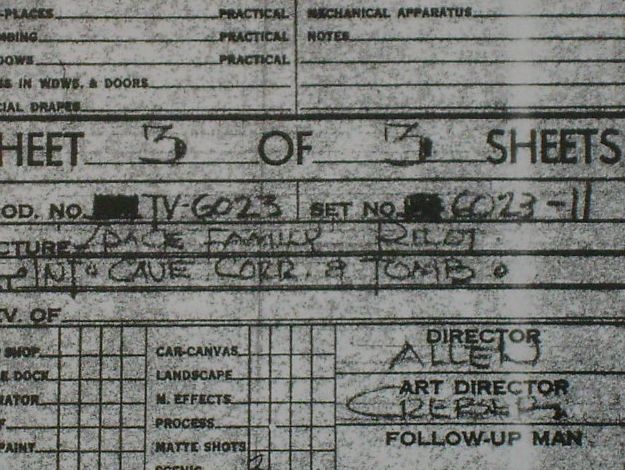 -PLACES PRACTICAL MECHANICAL APPARATUS
MBING PRACTICAL NOTES
DOWS PRACTICAL
SS IN WDWS. & DOORS
CIAL DRAPES
HEET 3 OF 3 SHEETS
OD. NO. TV-6023 SET NO. 6023-11
CTURE SPACE FAMILY PILOT
INT. CAVE CORR. & TOMB.
EV. OF
SHOP CAR-CANVAS DIRECTOR
E DOCK LANDSCAPE ALLEN
NATOR M. EFFECTS ART DIRECTOR
PROCESS CREBER
PAINT MATTE SHOTS FOLLOW-UP MAN
SCENIC